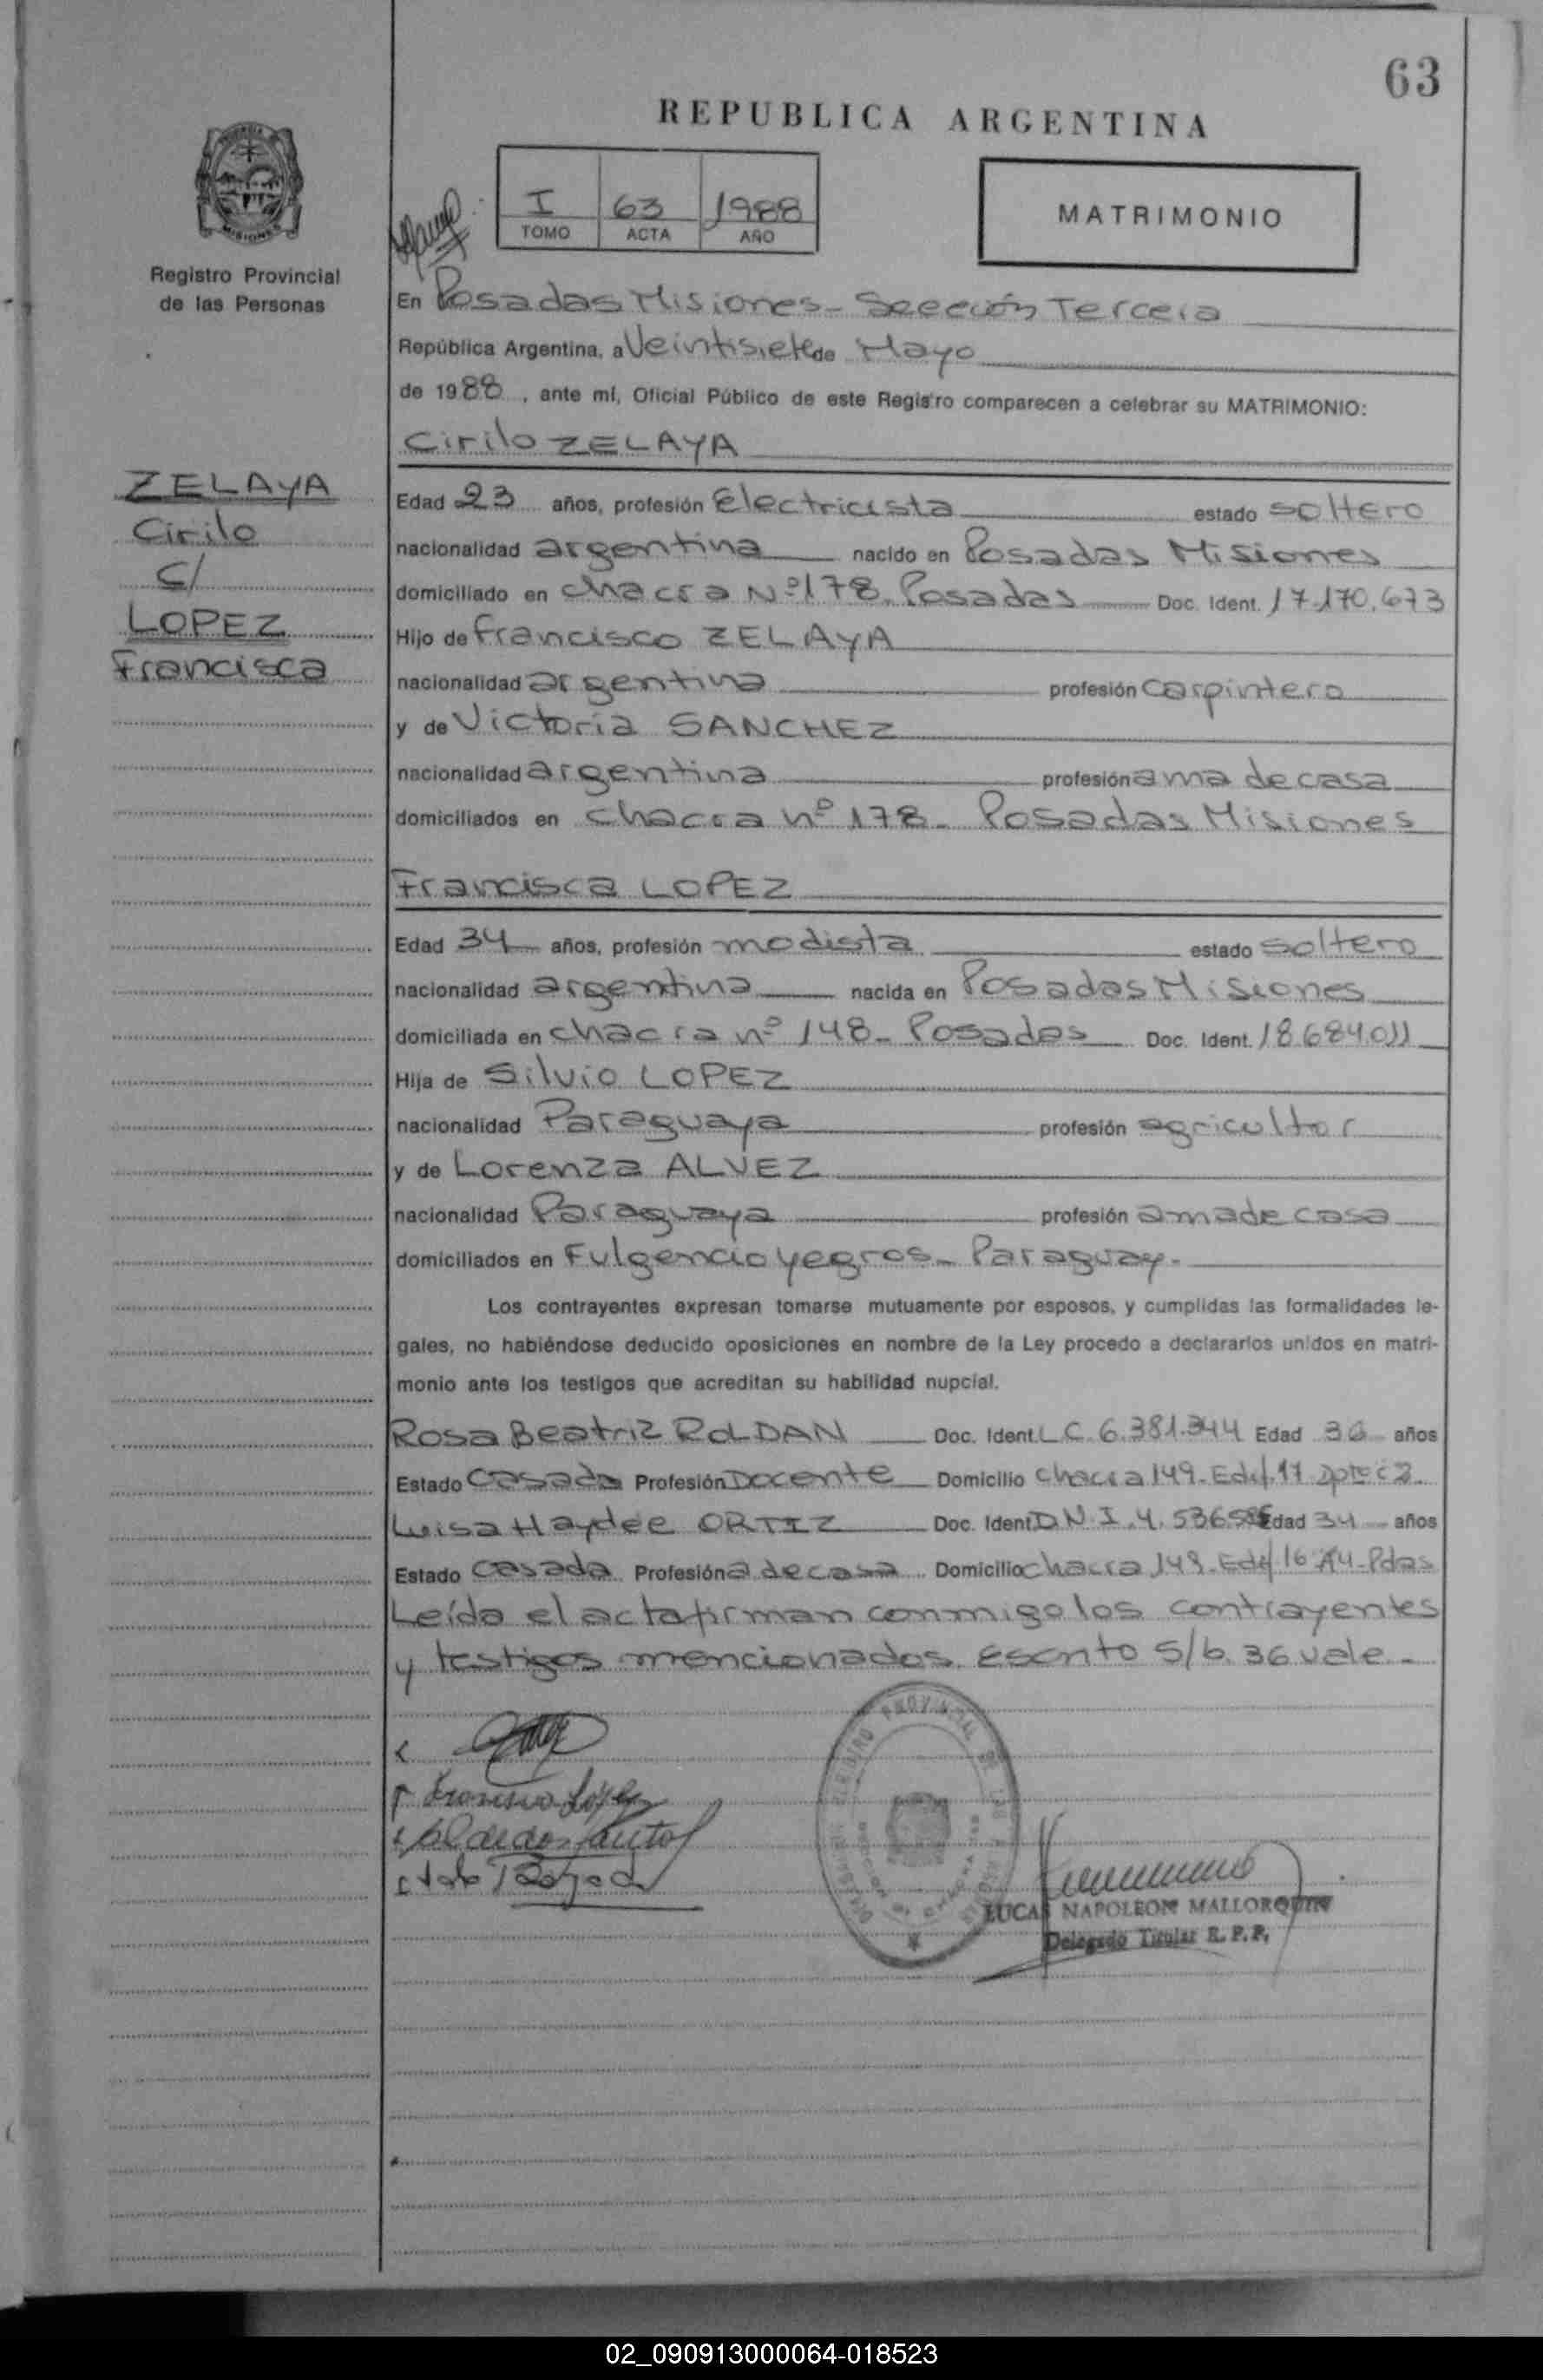 63
REPUBLICA ARGENTINA
I 63 1988
TOMO ACTA AÑO
MATRIMONIO
Registro Provincial
de las Personas
En Posadas Misiones - Sección Tercera
República Argentina, a Veintisiete de Mayo
de 1988, ante mí, Oficial Público de este Registro comparecen a celebrar su MATRIMONIO:
Cirilo ZELAYA
ZELAYA
Cirilo
C/
LOPEZ
Francisca
Edad 23 años, profesión Electricista estado soltero
nacionalidad argentina nacido en Posadas Misiones
domiciliado en chacra Nº 178 - Posadas Doc. Ident. 17.170.673
Hijo de Francisco ZELAYA
nacionalidad argentina profesión carpintero
y de Victoria SANCHEZ
nacionalidad argentina profesión ama de casa
domiciliados en chacra nº 178 - Posadas Misiones
Francisca LOPEZ
Edad 34 años, profesión modista estado soltero
nacionalidad argentina nacida en Posadas Misiones
domiciliada en chacra nº 148 - Posadas Doc. Ident. 18.684.011
Hija de Silvio LOPEZ
nacionalidad Paraguaya profesión agricultor
y de Lorenza ALVEZ
nacionalidad Paraguaya profesión ama de casa
domiciliados en Fulgencio yegros - Paraguay.
Los contrayentes expresan tomarse mutuamente por esposos, y cumplidas las formalidades le-
gales, no habiéndose deducido oposiciones en nombre de la Ley procedo a declararlos unidos en matri-
monio ante los testigos que acreditan su habilidad nupcial.
Rosa Beatriz ROLDAN Doc. Ident. L.C. 6.381.344 Edad 36 años
Estado Casada Profesión Docente Domicilio chacra 149 - Edif. 17
Luisa Haydee ORTIZ Doc. Ident. D.N.I. 4.536 Edad 34 años
Estado Casada Profesión a de casa Domicilio chacra 149 - Edif 16 - Pdas
Leída el acta firman conmigo los contrayentes
y testigos mencionados. Escrito s/b. 36 vale. -
LUCAS NAPOLEON MALLORQUIN
Delegado Titular R. P. P.
02_090913000064-018523